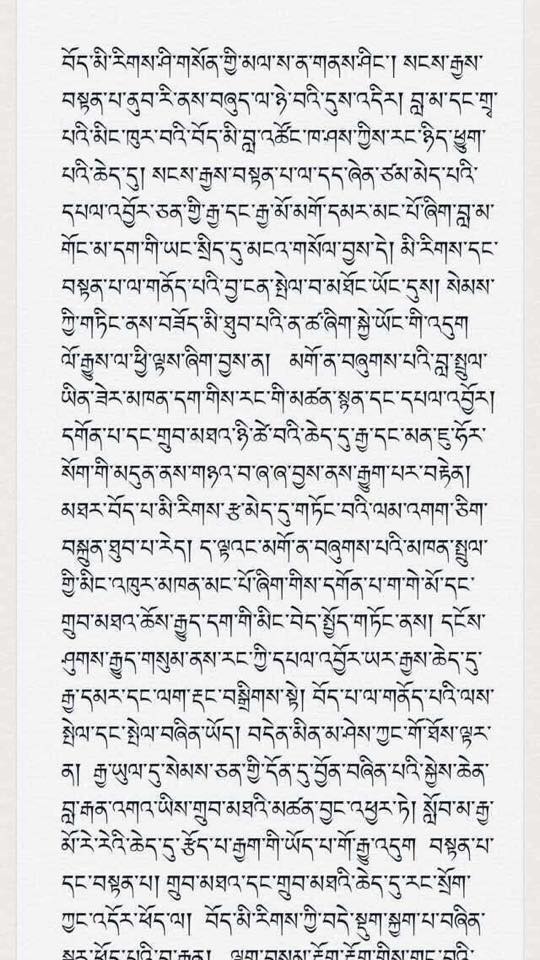 བོད་མི་རིགས་ཤི་གསོན་གྱི་མལ་ས་ན་གནས་ཤིང་། སངས་རྒྱས་
བསྟན་པ་ནུབ་རི་ནས་བཞུད་ལ་ཉེ་བའི་དུས་འདིར། བླ་མ་དང་གྲྭ་
པའི་མིང་ཁུར་བའི་བོད་མི་བླ་འཚོང་ཁ་ཤས་ཀྱིས་རང་ཉིད་ཕྱུག་
པའི་ཆེད་དུ། སངས་རྒྱས་བསྟན་པ་ལ་དད་ཞེན་ཙམ་མེད་པའི་
དཔལ་འབྱོར་ཅན་གྱི་རྒྱ་དང་རྒྱ་མོ་མགོ་དམར་མང་པོ་ཞིག་བླ་མ་
གོང་མ་དག་གི་ཡང་སྲིད་དུ་མངའ་གསོལ་བྱས་ཏེ། མི་རིགས་དང་
བསྟན་པ་ལ་གནོད་པའི་བྱ་ངན་སྤེལ་བ་མཐོང་ཡོང་དུས། སེམས་
ཀྱི་གཏིང་ནས་བཟོད་མི་ཐུབ་པའི་ན་ཚ་ཞིག་སྐྱེ་ཡོང་གི་འདུག
ལོ་རྒྱུས་ལ་ཕྱི་ལྟས་ཞིག་བྱས་ན། མགོ་ན་བཞུགས་པའི་བླ་སྤྲུལ་
ཡིན་ཟེར་མཁན་དག་གིས་རང་གི་མཚན་སྙན་དང་དཔལ་འབྱོར།
དགོན་པ་དང་གྲུབ་མཐའ་ཉི་ཚེ་བའི་ཆེད་དུ་རྒྱ་དང་མན་ཇུ་ཧོར་
སོག་གི་མདུན་ནས་གཉའ་བ་ཞ་ཞ་བྱས་ནས་རྒྱུག་པར་བརྟེན།
མཐར་བོད་པ་མི་རིགས་རྩ་མེད་དུ་གཏོང་བའི་ལམ་འགག་ཅིག་
བསྐྲུན་ཐུབ་པ་རེད། ད་ལྟའང་མགོ་ན་བཞུགས་པའི་མཁན་སྤྲུལ་
གྱི་མིང་འཁུར་མཁན་མང་པོ་ཞིག་གིས་དགོན་པ་ག་གེ་མོ་དང་
གྲུབ་མཐའ་ཆོས་རྒྱུད་དག་གི་མིང་བེད་སྤྱོད་གཏོང་ནས། དངོས་
ཤུགས་རྒྱུད་གསུམ་ནས་རང་ཀྱི་དཔལ་འབྱོར་ཡར་རྒྱས་ཆེད་དུ་
རྒྱ་དམར་དང་ལག་རྡང་བསྒྲིགས་སྟེ། བོད་པ་ལ་གནོད་པའི་ལས་
སྤེལ་དང་སྤེལ་བཞིན་ཡོད། བདེན་མིན་མ་ཤེས་ཀྱང་གོ་ཐོས་ལྟར་
ན། རྒྱ་ཡུལ་དུ་སེམས་ཅན་གྱི་དོན་དུ་བྱོན་བཞིན་པའི་སྐྱེས་ཆེན་
བླ་རྒན་འགའ་ཡིས་གྲུབ་མཐའི་མཚན་བྱང་འཕྱར་ཏེ། སློབ་མ་རྒྱ་
མོ་རེ་རེའི་ཆེད་དུ་རྩོད་པ་རྒྱག་གི་ཡོད་པ་གོ་རྒྱུ་འདུག བསྟན་པ་
དང་བསྟན་པ། གྲུབ་མཐའ་དང་གྲུབ་མཐའི་ཆེད་དུ་རང་སྲོག་
ཀྱང་འདོར་ཕོད་ལ། བོད་མི་རིགས་ཀྱི་བདེ་སྡུག་སྐྱག་པ་བཞིན་